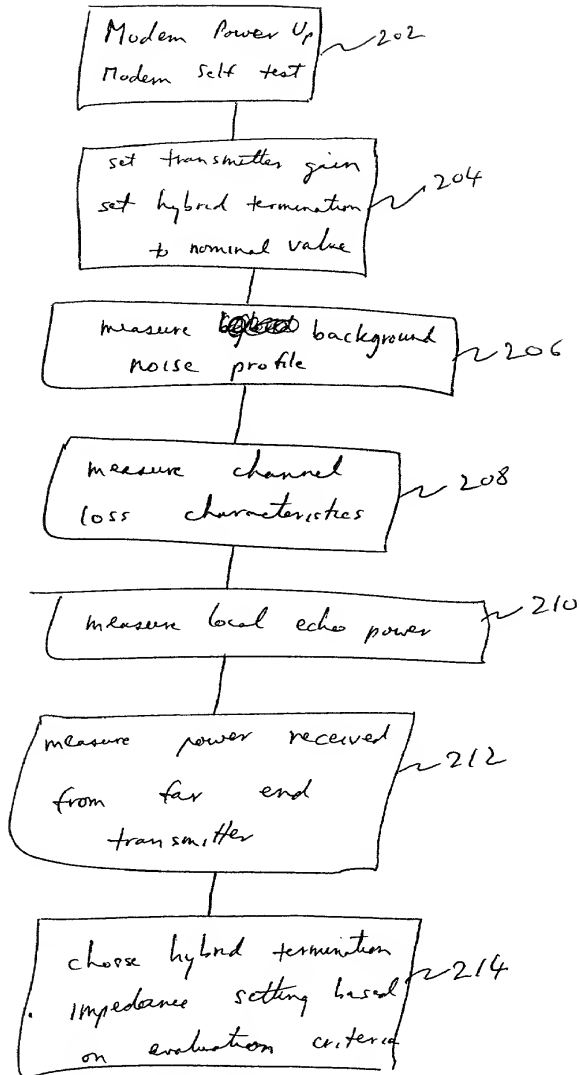 Modem Power Up
202
Modem self test
set transmitter gain
204
set hybrid termination
to nominal value
measure background
206
noise profile
measure channel
208
loss characteristics
measure local echo power
210
measure power received
212
from far end
transmitter
choose hybrid termination
214
impedance setting based
on evaluation criteria